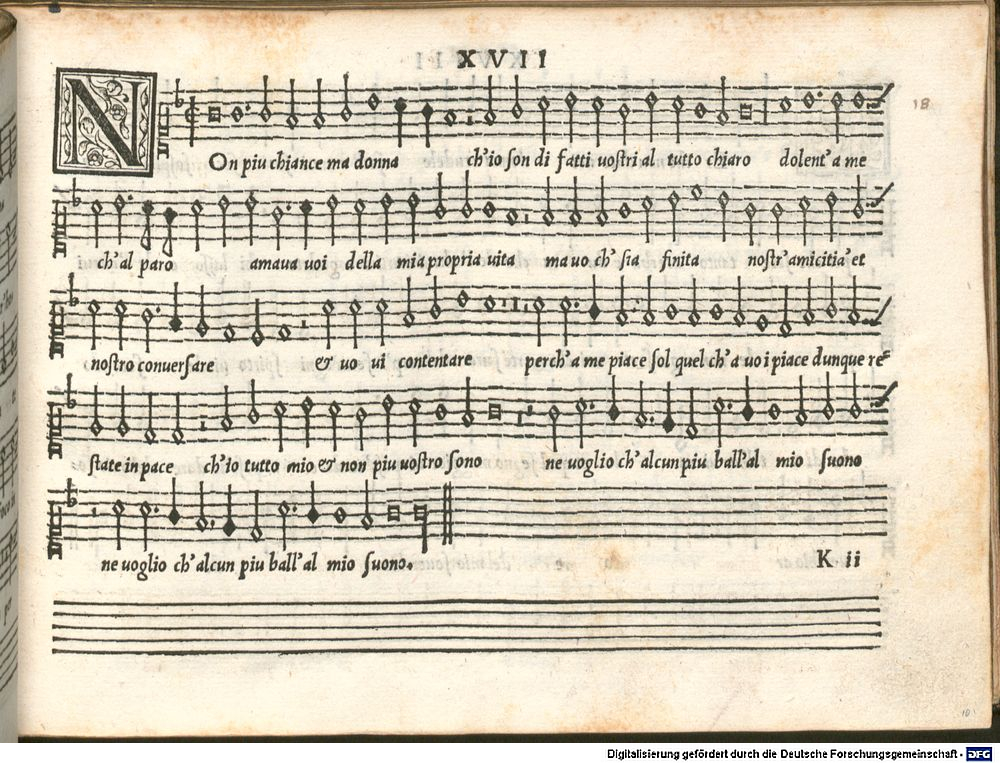 XVII
18
NOn piu chiance ma donna ch'io son di fatti uostri al tutto chiaro dolent' a me
ch'al paro amaua uoi della mia propria uita ma uo ch' sia finita nostr' amicitia' et
nostro conuersare & uo ui contentare perch'a me piace sol quel ch' a uoi piace dunque re=
state in pace ch'io tutto mio & non piu uostro sono ne uoglio ch' alcun piu ball' al mio suono
ne uoglio ch' alcun piu ball' al mio suono.
K ii
Digitalisierung gefördert durch die Deutsche Forschungsgemeinschaft - DFG